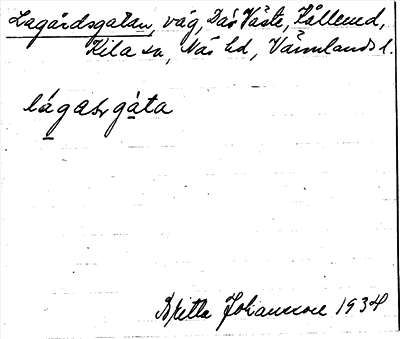 Lagårdsgatan, väg, Där Väste, Hållened,
Kila sn, Näs hd, Värmlands l.
lágasrgáta
Britta Johansson 1934